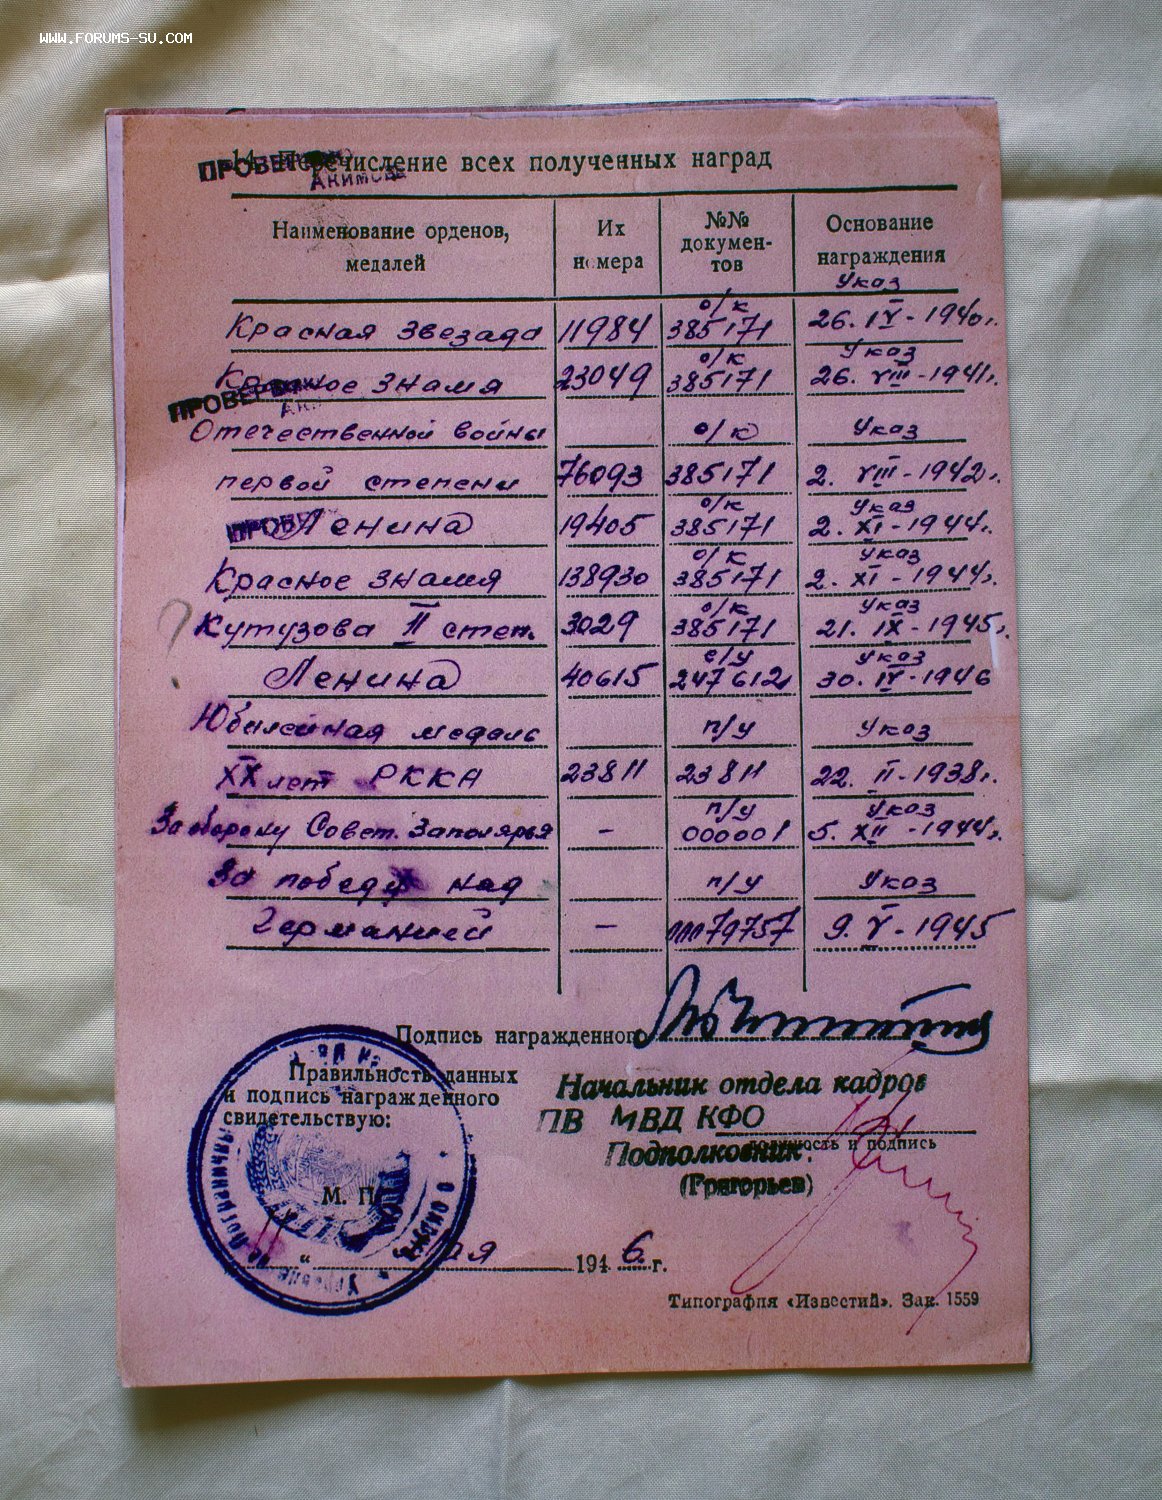 WWW.FORUMS-SU.COM
14. Перечисление всех полученных наград
ПРОВЕРЕНО
АКИМОВЕ
Наименование орденов, медалей
Их номера
№№ докумен-тов
Основание награждения
Указ
о/к
Красная звезада 11984 385171 26. IV - 1940г.
о/к Указ
Красное знамя 23049 385171 26. VIII - 1941г.
ПРОВЕРЕНО
Отечественной войны о/к Указ
первой степени 76093 385171 2. VIII - 1942г.
о/к Указ
ПРОВЕ Ленина 19405 385171 2. XI - 1944г.
о/к Указ
Красное знамя 138930 385171 2. XI - 1944г.
о/к Указ
? Кутузова II степ. 3029 385171 21. IX - 1945г.
с/у Указ
Ленина 40615 247612 30. IV - 1946
Юбилейная медаль п/у Указ
XX лет РККА 23811 23811 22. II - 1938г.
п/у Указ
За оборону Совет. Заполярья - 000001 5. XII - 1944г.
За победу над п/у Указ
Германией - 0079757 9. V - 1945
Подпись награжденного
Правильность данных
и подпись награжденного
свидетельствую:
Начальник отдела кадров
ПВ МВД КФО
должность и подпись
Подполковник:
(Григорьев)
М. П.
" мая 1946 г.
Типография «Известий». Зак. 1559